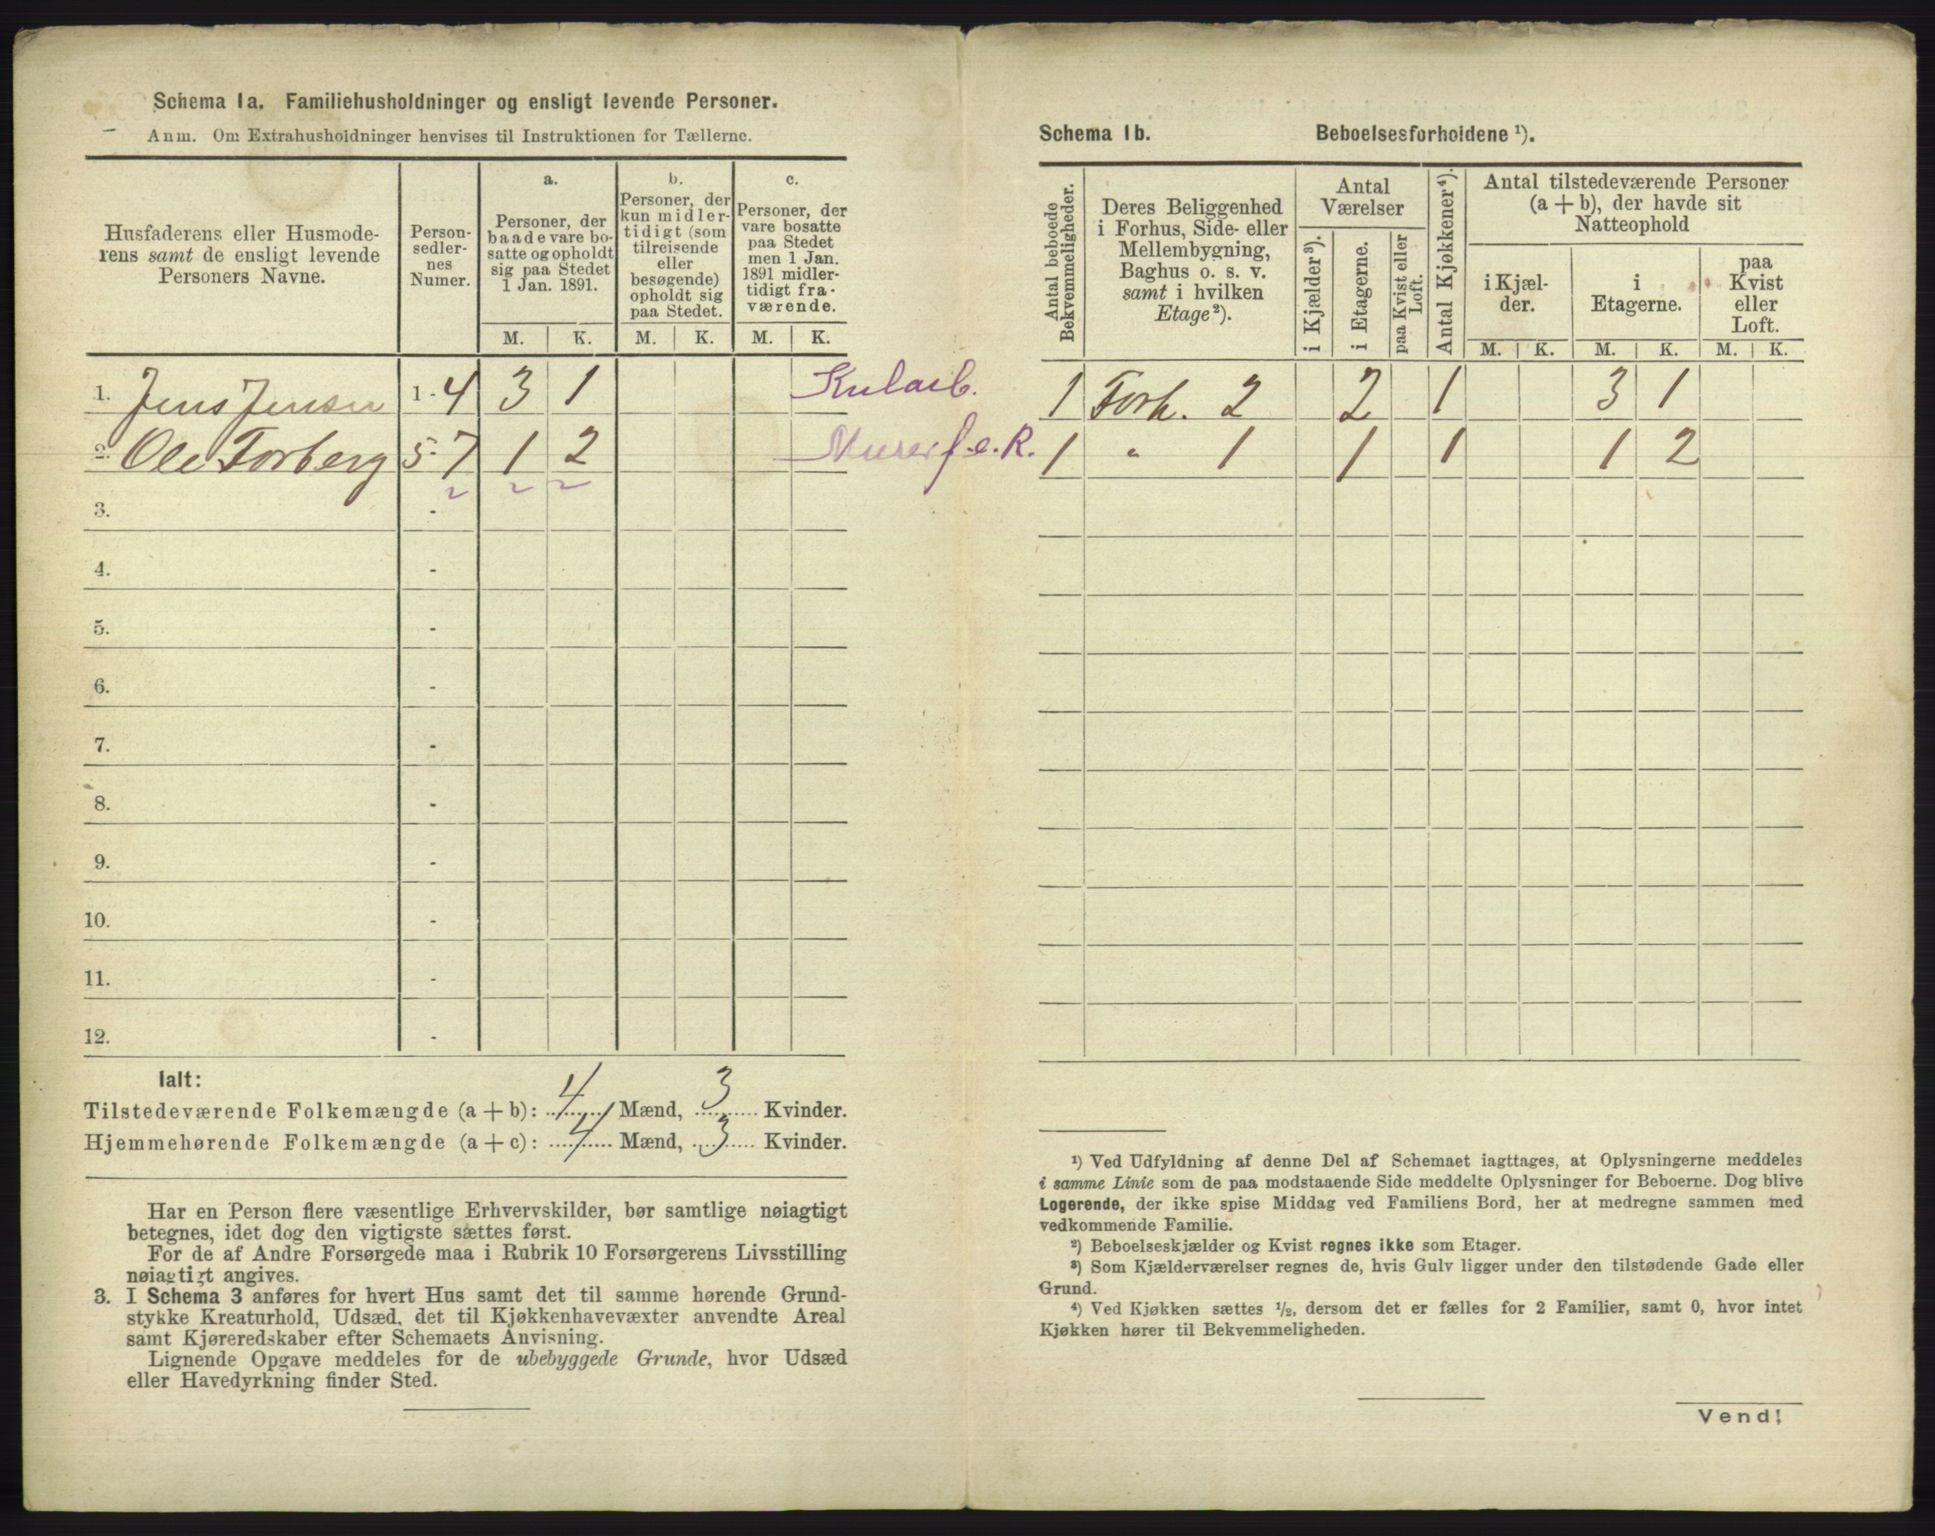 Schema 1a. Familiehusholdninger og ensligt levende Personer.
Anm. Om Extrahusholdninger henvises til Instruktionen for Tællerne.
Husfaderens eller Husmoderens samt de ensligt levende Personers Navne.
Personsedlernes Numer.
a.
Personer, der baade vare bosatte og opholdt sig paa Stedet 1 Jan. 1891.
b.
Personer, der kun midlertidigt (som tilreisende eller besøgende) opholdt sig paa Stedet.
c.
Personer, der vare bosatte paa Stedet men 1 Jan. 1891 midlertidigt fraværende.
M. K. M. K. M. K.
1. Jens Jensen 1-4 3 1 Kularb.
2. Ole Torberg 5-7 1 2 Murerf.e.R.
3. -
4. -
5. -
6. -
7. -
8. -
9. -
10. -
11. -
12. -
Ialt:
Tilstedeværende Folkemængde (a + b): 4 Mænd, 3 Kvinder.
Hjemmehørende Folkemængde (a + c): 4 Mænd, 3 Kvinder.
Har en Person flere væsentlige Erhvervskilder, bør samtlige nøiagtigt
betegnes, idet dog den vigtigste sættes først.
For de af Andre Forsørgede maa i Rubrik 10 Forsørgerens Livsstilling
nøiagtigt angives.
3. I Schema 3 anføres for hvert Hus samt det til samme hørende Grund-
stykke Kreaturhold, Udsæd, det til Kjøkkenhavevæxter anvendte Areal
samt Kjøreredskaber efter Schemaets Anvisning.
Lignende Opgave meddeles for de ubebyggede Grunde, hvor Udsæd
eller Havedyrkning finder Sted.
Schema 1b. Beboelsesforholdene ¹).
Antal beboede Bekvemmeligheder.
Deres Beliggenhed i Forhus, Side- eller Mellembygning, Baghus o. s. v. samt i hvilken Etage²).
Antal Værelser
i Kjælder³).
i Etagerne.
paa Kvist eller Loft.
Antal Kjøkkener⁴).
Antal tilstedeværende Personer (a + b), der havde sit Natteophold
i Kjælder.
i Etagerne.
paa Kvist eller Loft.
M. K. M. K. M. K.
1 Forh. 2 2 1 3 1
1 " 1 1 1 1 2
¹) Ved Udfyldning af denne Del af Schemaet iagttages, at Oplysningerne meddeles
i samme Linie som de paa modstaaende Side meddelte Oplysninger for Beboerne. Dog blive
Logerende, der ikke spise Middag ved Familiens Bord, her at medregne sammen med
vedkommende Familie.
²) Beboelseskjælder og Kvist regnes ikke som Etager.
³) Som Kjælderværelser regnes de, hvis Gulv ligger under den tilstødende Gade eller
Grund.
⁴) Ved Kjøkken sættes ½, dersom det er fælles for 2 Familier, samt 0, hvor intet
Kjøkken hører til Bekvemmeligheden.
Vend!